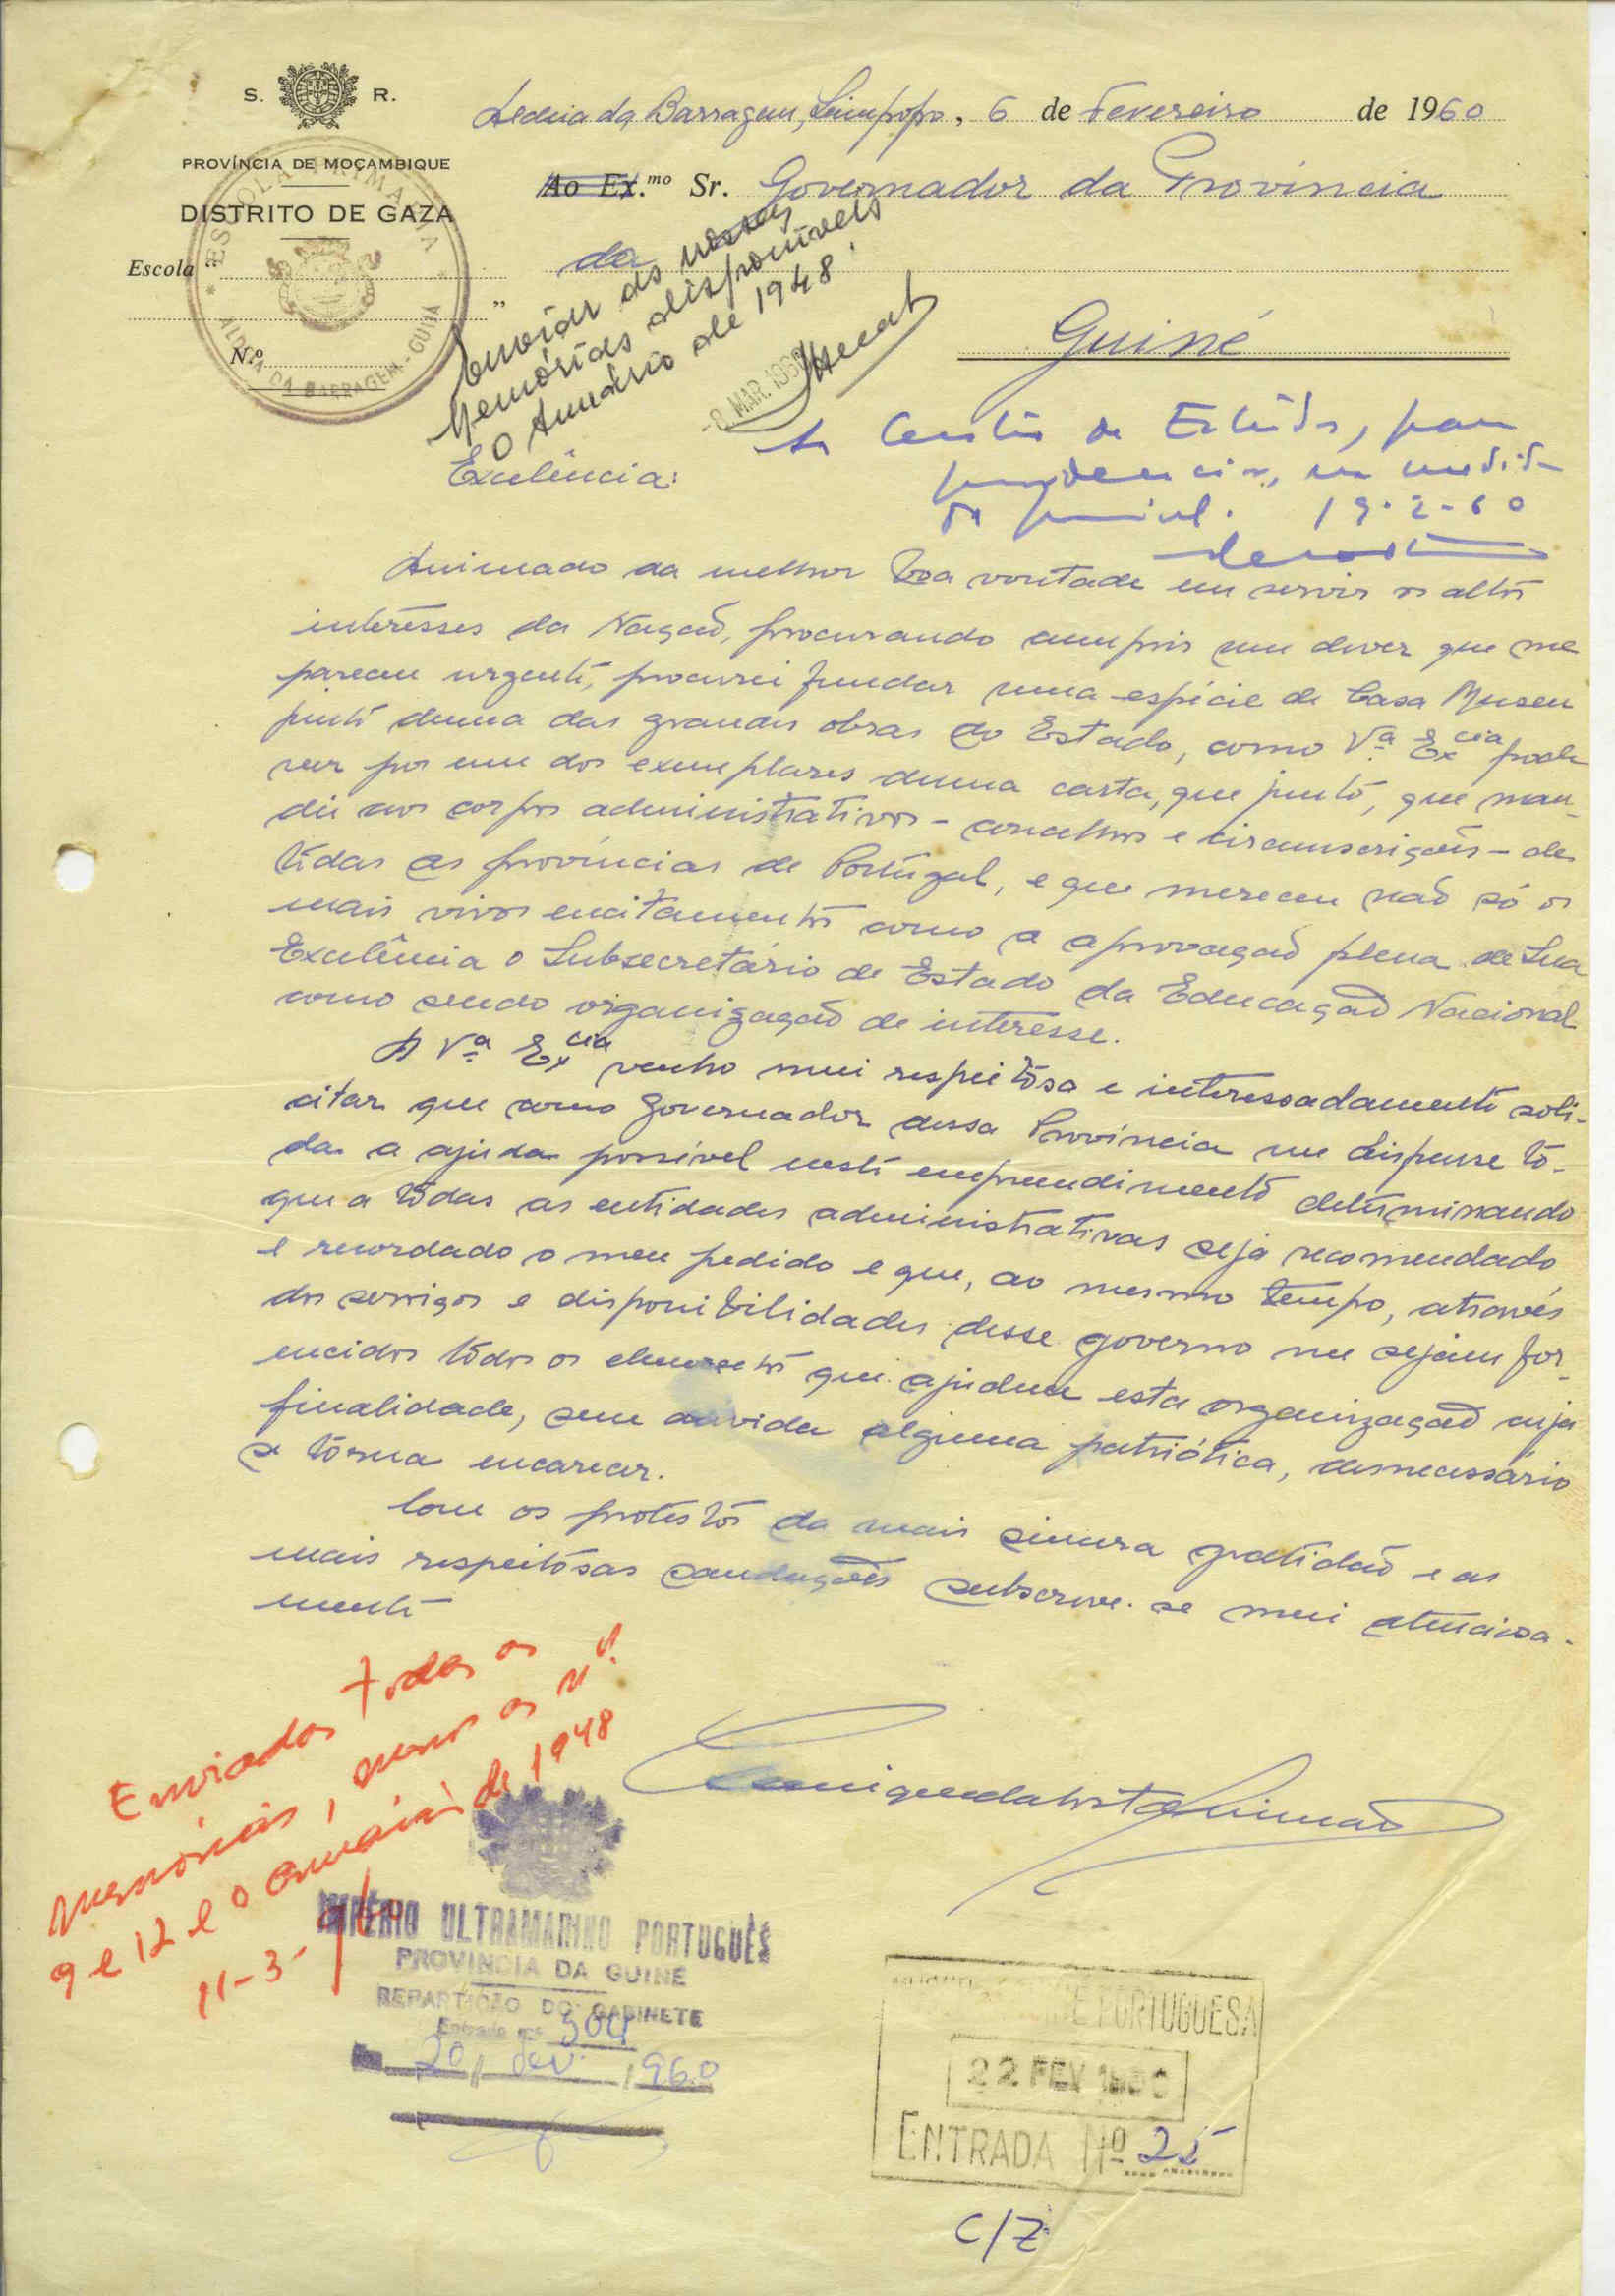 S. R.
PROVÍNCIA DE MOÇAMBIQUE
DISTRITO DE GAZA
Escola "
"
N.º
ESCOLA PRIMÁRIA
ALDEIA DA BARRAGEM - GUIJÁ
Aldeia da Barragem, Limpopo, 6 de Fevereiro de 1960
Ao Ex.mo Sr. Governador da Província
da
Guiné
Enviar as nossas
Memórias disponíveis
O Anuário de 1948
-8 MAR. 1960
Ao Centro de Estudos, para
providenciar, na medida
do possível. 19-2-60
Excelência:
Animado da melhor boa vontade em servir os altos
interêsses da Nação, procurando cumprir um dever que me
pareceu urgente, procurei fundar uma espécie de Casa Museu
junto duma das grandes obras do Estado, como Vª Excia pode
ver por um dos exemplares duma carta, que junto, que man-
dei aos corpos administrativos - concelhos e circunscrições - de
tôdas as províncias de Portugal, e que mereceu não só os
mais vivos incitamentos como a aprovação plena de Sua
Excelência o Subsecretário de Estado da Educação Nacional
como sendo organização de interêsse.
A Vª Excia venho mui respeitosa e interessadamente soli-
citar que como Governador dessa Província me dispense tô-
da a ajuda possível neste empreendimento determinando
que a tôdas as entidades administrativas seja recomendado
e recordado o meu pedido e que, ao mesmo tempo, através
dos serviços e disponibilidades desse governo me sejam for-
necidos todos os elementos que ajudem esta organização cuja
finalidade, sem dúvida alguma patriótica, desnecessário
se tôrna encarecer.
Com os protestos da mais sincera gratidão e as
mais respeitosas saudações subscreve-se mui atenciosa-
mente
Enviados todas as
memórias, menos os nºs.
9 e 12 e o anuário de 1948
11-3-
IMPÉRIO ULTRAMARINO PORTUGUÊS
PROVINCIA DA GUINÉ
REPARTIÇÃO DO GABINETE
Entrada nº 504
20 / Fev. / 1960
GUINÉ PORTUGUESA
22 FEV 1960
ENTRADA Nº 25
C/Z